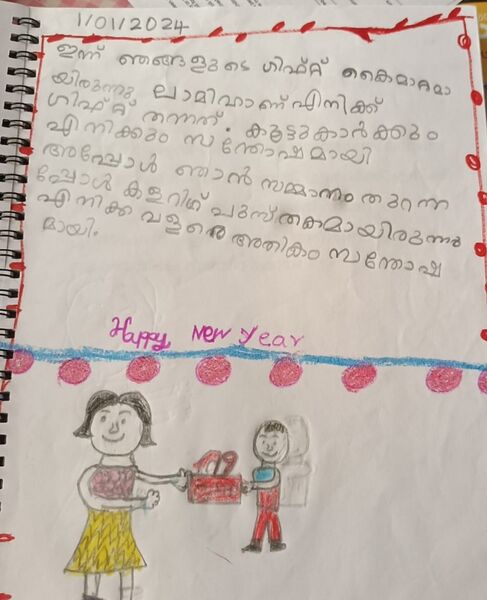 1/01/2024
ഇന്ന് ഞങ്ങളുടെ ഗിഫ്റ്റ് കൈമാറ്റമാ
യിരുന്നു ലാമിഹാണ് എനിക്ക്
ഗിഫ്റ്റ് തന്നത്. കൂട്ടുകാർക്കും
എനിക്കും സന്തോഷമായി
അപ്പോൾ ഞാൻ സമ്മാനം തുറന്ന
പ്പോൾ കളറിഗ് പുസ്തകമായിരുന്നു
എനിക്ക വളരെ അതികം സന്തോഷ
മായി.
Happy New Year